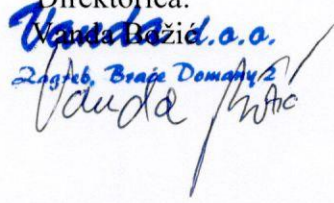 Direktorica:
Vanda Božić
Vanda d.o.o.
Zagreb, Braće Domany 2
Vanda Božić